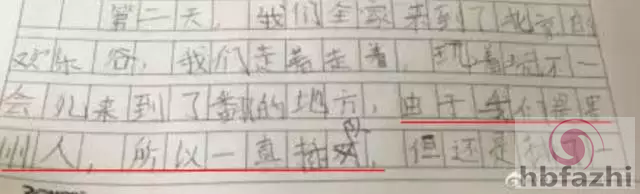 第二天，我们全家来到了北京的
欢乐谷，我们走着走着，玩着玩不一
会儿来到了的地方，由于我们是
州人，所以一直队，但还是了一
hbfazhi